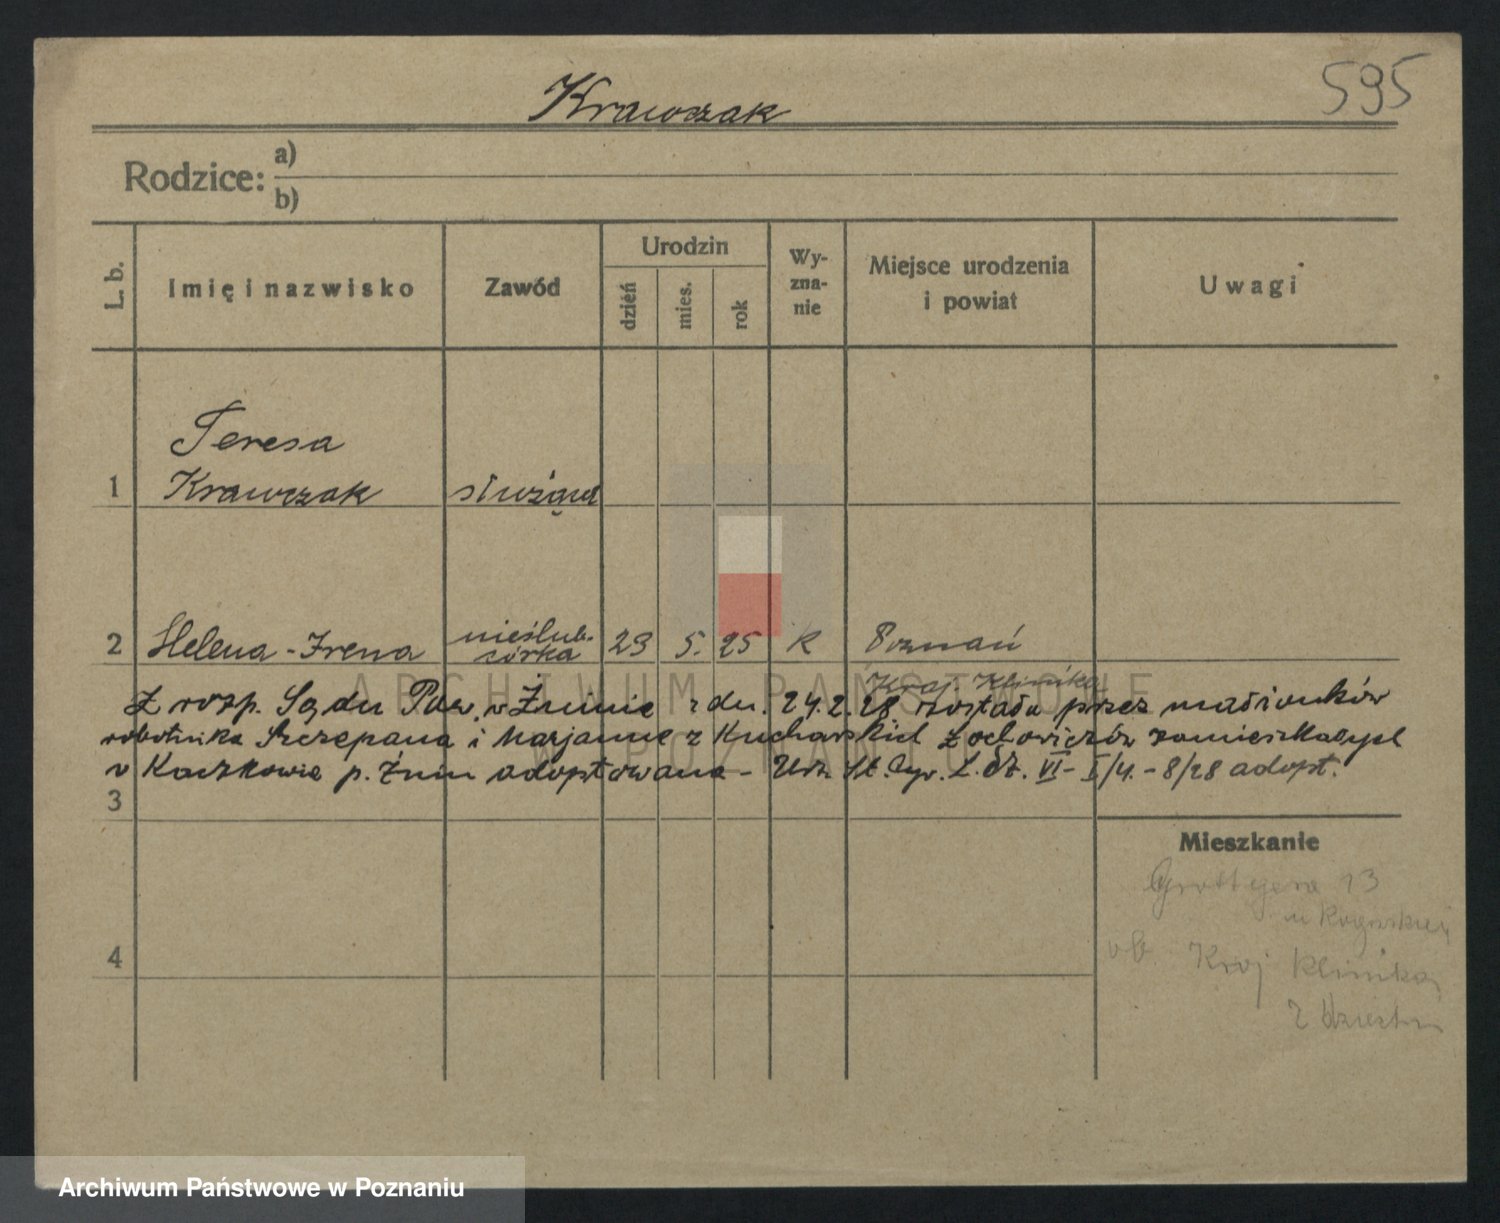 Krawczak
595
Rodzice:
a)
b)
L. b.
Imię i nazwisko
Zawód
Urodzin
dzień
mies.
rok
Wy-
zna-
nie
Miejsce urodzenia
i powiat
Uwagi
Teresa
1 Krawczak służąca
2 Helena-Irena nieślub. córka 23 5. 25 k Poznań
Kraj. Klinika
Z rozp. Sądu Pow. w Żninie z dn. 24.2.28 została przez małżonków
robotnika Szczepana i Marjannę z Kucharskich zamieszkałych
w Kaczkowie p. Żnin adoptowana - Urz. St. Cyw. L. dz. VI- I/4. - 8/28 adopt.
3
4
Mieszkanie
Grottgera 13
ob. Kraj Klinika
z
ARCHIWUM PAŃSTWOWE
POZNAŃ
Archiwum Państwowe w Poznaniu